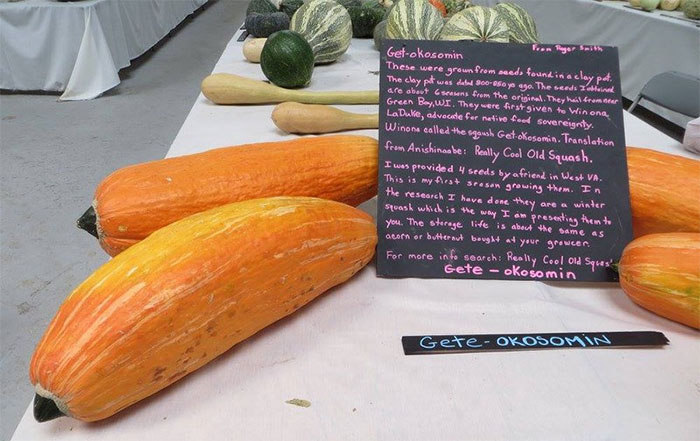 Get-okosomin From Roger Smith
These were grown from seeds found in a clay pot.
The clay pot was dated 800-850 yo ago. The seeds I obtained
are about 6 seasons from the original. They hail from near
Green Bay, WI. They were first given to Winona
LaDuke, advocate for native food sovereignty.
Winona called the sqaush Get-okosomin. Translation
from Anishinaabe: Really Cool Old Squash.
I was provided 4 seeds by a friend in West VA.
This is my first season growing them. In
the research I have done they are a winter
squash which is the way I am presenting them to
you. The storage life is about the same as
acorn or butternut bought at your grocer.
For more info search: Really Cool Old Squash
Gete - okosomin
Gete-OKOSOMIN